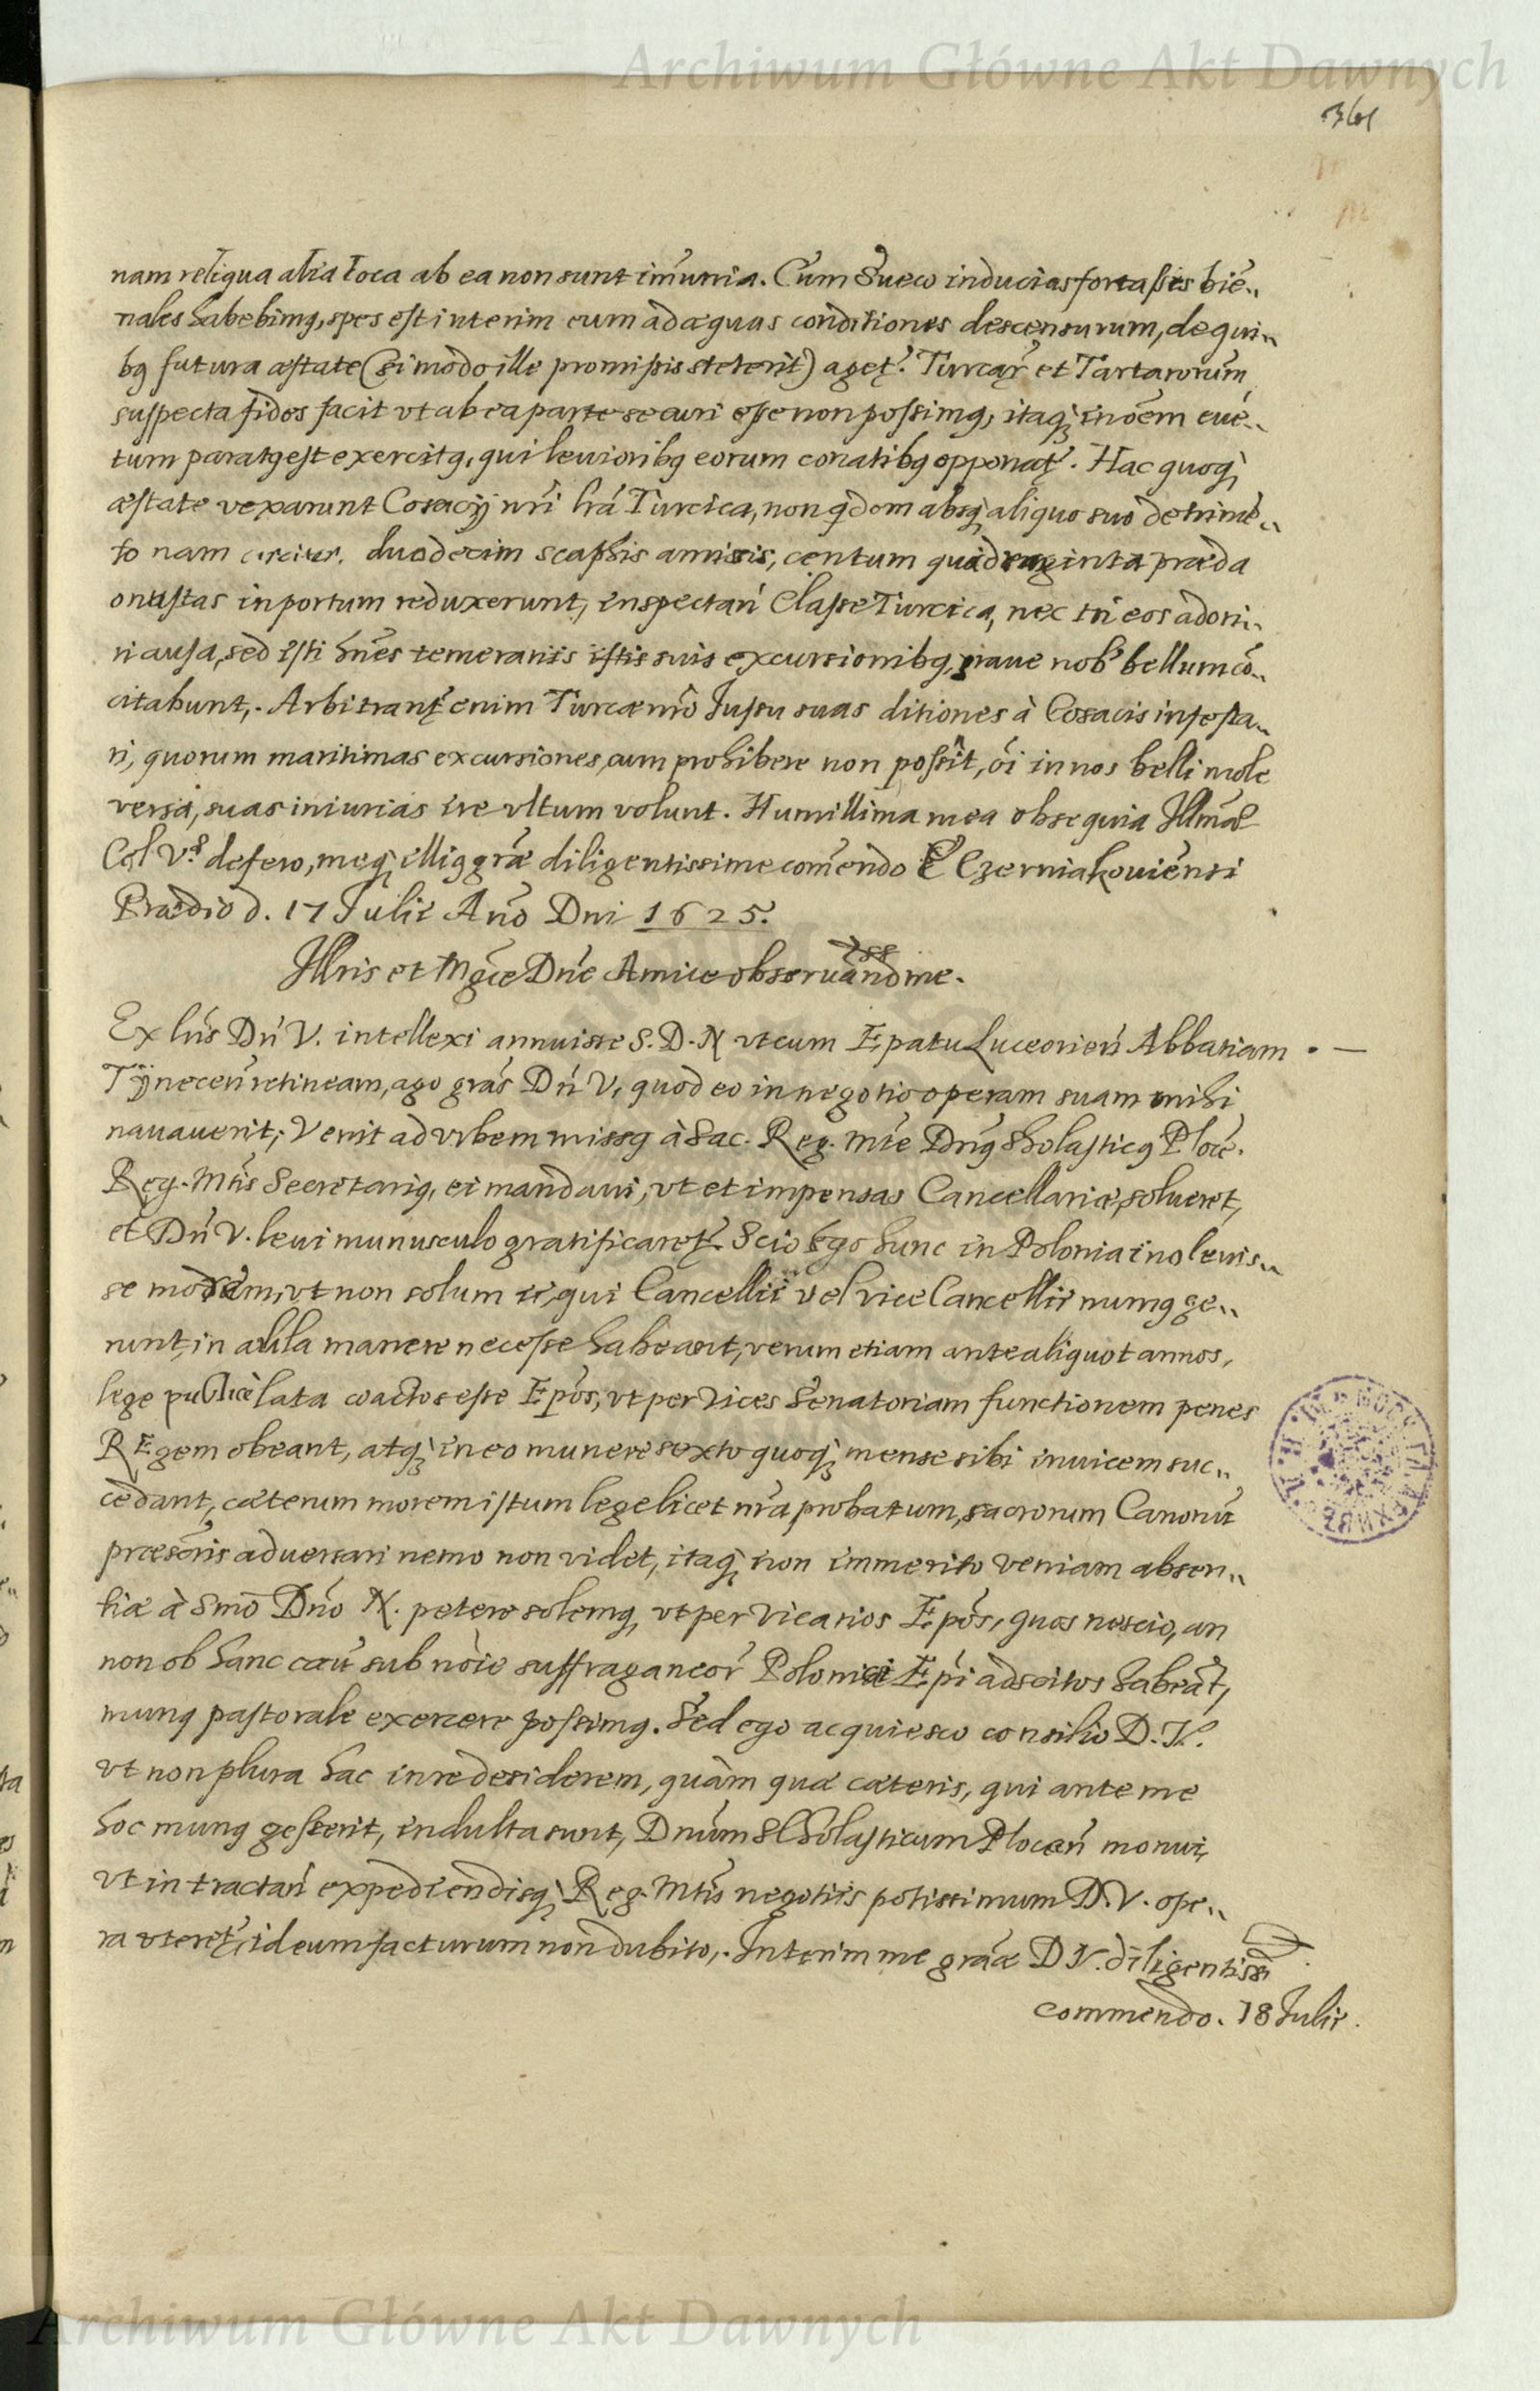 Archiwum Główne Akt Dawnych
361
nam reliqua alia loca ab ea non sunt im̃unia. Cum Sueco inducias fortassis biẽ„
nales habebimꝯ, spes est interim eum ad æquas conditiones descensurum, de qui„
bꝯ futura æstate (si modo ille promissis steterit) agetʳ. Turcar̃ et Tartarorum
suspecta fides facit vt ab ea parte securi esse non possimꝯ, itaqꝫ in oẽm euẽ„
tum paratꝯ est exercitꝯ, qui leuioribꝯ eorum conatibꝯ opponatʳ. Hac quoqꝫ
æstate vexarunt Cosacij nr̃i Turcica, non qdem absqꝫ aliquo suo detrimẽ„
to nam circiter duodecim scaphis amissis, centum quadraginta præda
onustas in portum reduxerunt, inspectañ Classe Turcica, nec tñ eos adori„
ri ausa, sed isti hões temerariis istis suis excursionibꝯ, graue nob bellum cõ„
citabunt. Arbitrantʳ enim Turcæ nr̃o Jussu suas ditiones à Cosacis infesta„
ri, quorum maritimas excursiones, cum prohibere non possĩt, oĩ in nos belli mole
versa, suas iniurias ire vltum volunt. Humillima mea obsequia Illmæ
Cel V. defero, meqꝫ illiꝯ grãe diligentissime com̃endo E Czerniakouiensi
Prædio d. 17 Julii Año Dni 1625.
Illris et Mgce Dñe Amice obseruandme.
Ex lr̃is Dñ V. intellexi annuisse S. D. N vt cum Epatu Luceorieñ Abbatiam
Tÿneceñ retineam, ago grãs Dñ V, quod eo in negotio operam suam mihi
nauauerit; Venit ad vrbem missꝯ à Sac. Reg. Mte Dnꝯ Sholasticꝯ Ploce.
Reg. Mtis Secretariꝯ, ei mandaui, vt et impensas Cancellariæ solueret,
et Dñ V. leui munusculo gratificaretʳ. Scio Ego hunc in Polonia inoleuis„
se morem, vt non solum ii, qui Cancellii vel vice Cancellii munꝯ ge„
runt, in aula manere necesse habeant, verum etiam ante aliquot annos,
lege publicè lata coactos esse Epõs, vt per vices Senatoriam functionem penes
REgem obeant, atqꝫ in eo munere sexto quoqꝫ mense sibi inuicem suc„
cedant, cæterum morem istum lege licet nr̃a probatum, sacrorum Canonũ
præscr̃is aduersari nemo non videt, itaqꝫ non immerito veniam absen„
tiæ à Smõ Dño N. petere solemꝯ, vt per Vicarios Epõs, quos nescio, an
non ob hanc cau͂ sub nõie suffraganeor̃ Polonici Epĩ adscitos habeãt,
munꝯ pastorale exercere possimꝯ. Sed ego acquiesco consilio D. V.
vt non plura hac in re desiderem, quàm quæ cæteris, qui ante me
hoc munꝯ gesserũt, indulta sunt, Dnũm Sholasticum Plocen̄ monui,
vt in tractañ expediendisqꝫ Reg. Mtis negotiis potissimum D. V. ope„
ra vteretʳ, id eum facturum non dubito. Interim me grãæ D V. diligentissi
commendo. 18 Julii.
Archiwum Główne Akt Dawnych